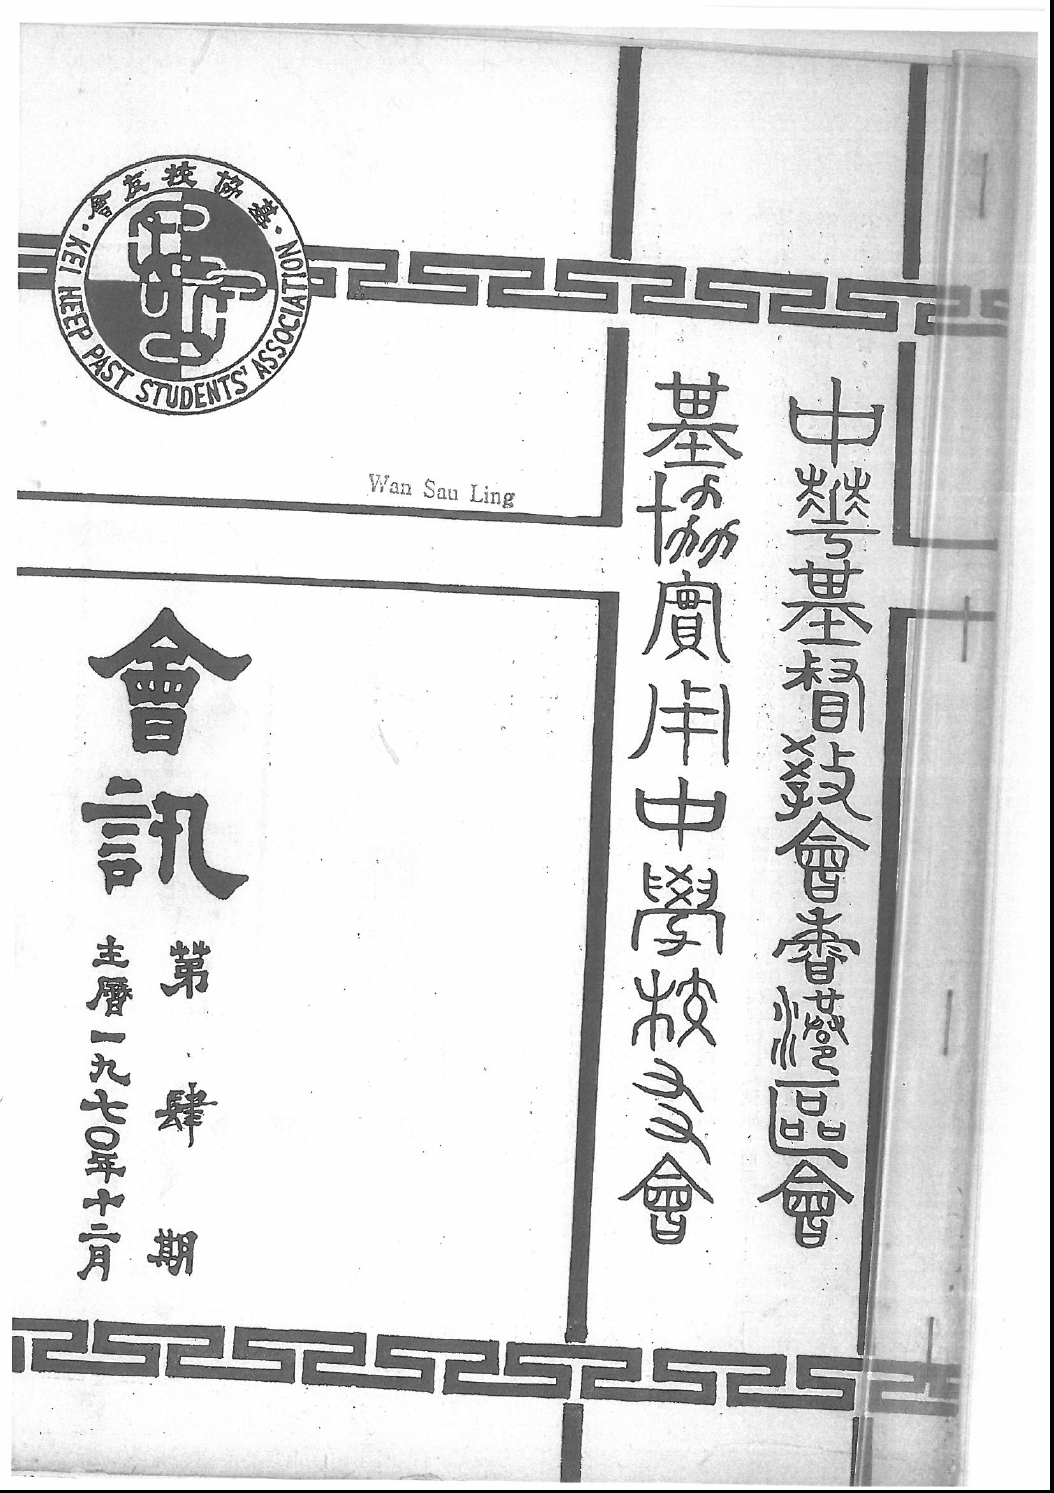 中華基督教會香港區會
基協實用中學校友會
基協校友會
KEI HEEP PAST STUDENTS' ASSOCIATION
Wan Sau Ling
會訊
第肆期
主曆一九七〇年十二月